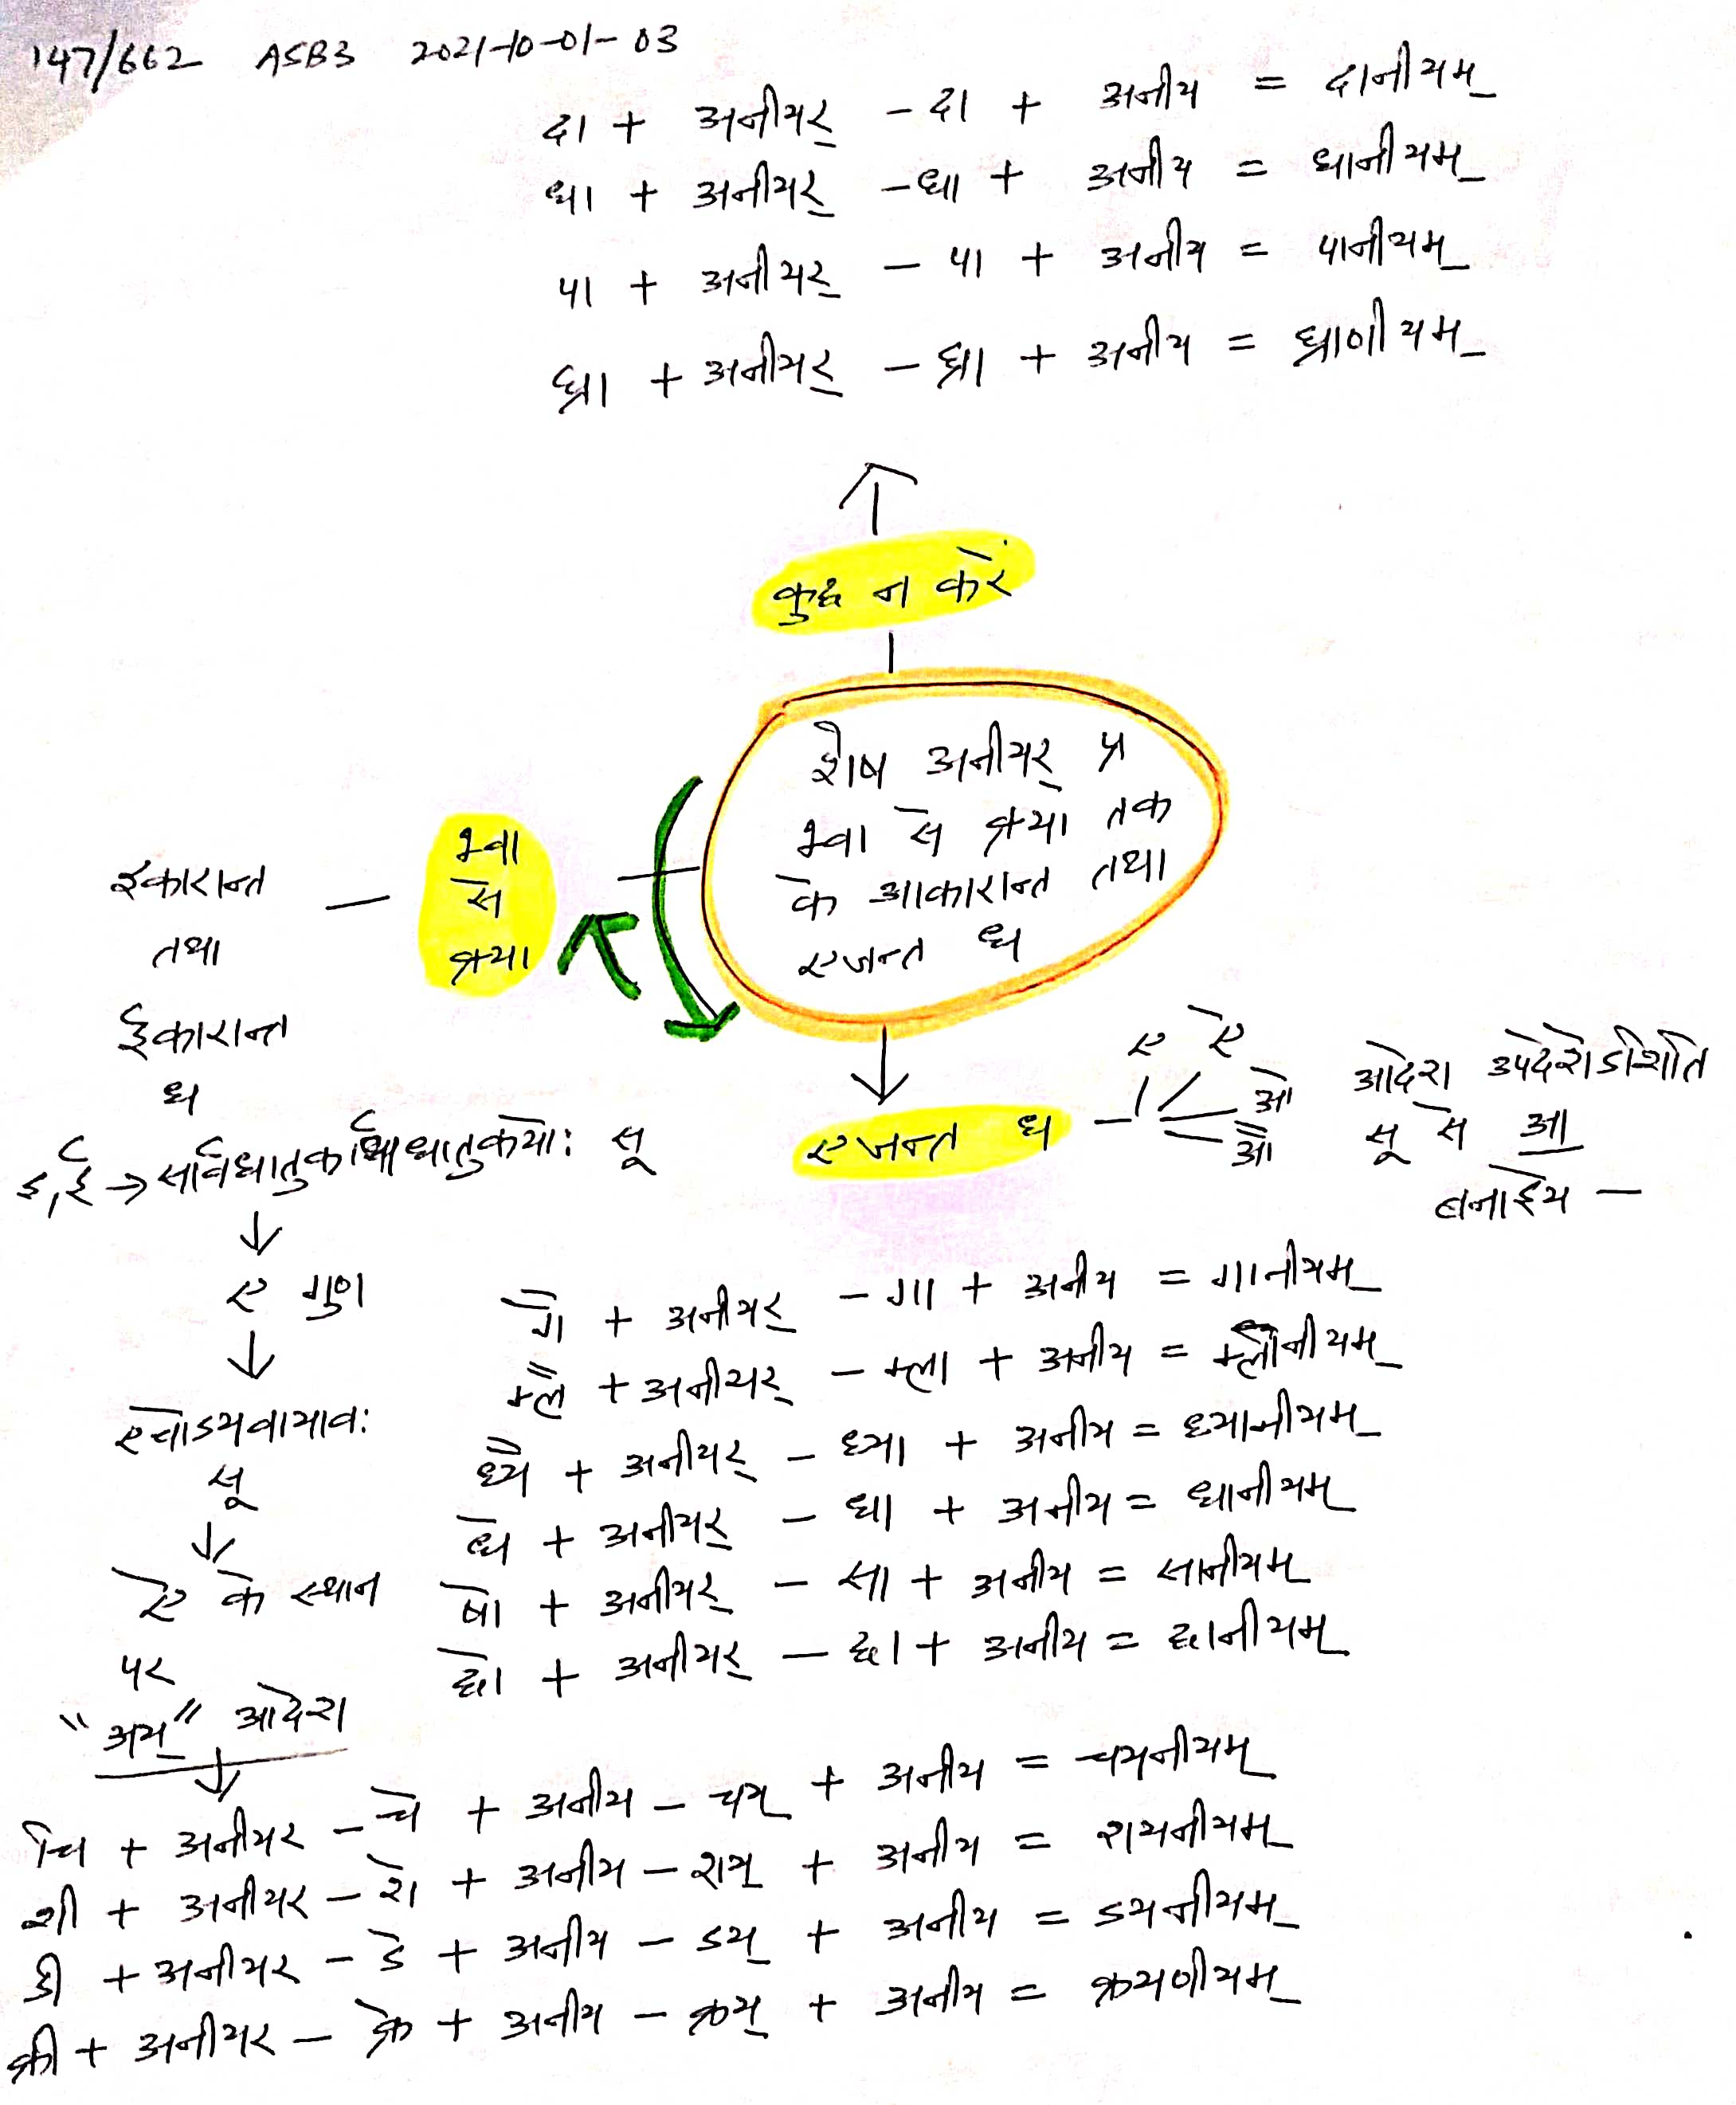 147/662 ASB3 2021-10-01-03
दा + अनीयर् - दा + अनीय = दानीयम्
धा + अनीयर् - धा + अनीय = धानीयम्
पा + अनीयर् - पा + अनीय = पानीयम्
घ्रा + अनीयर् - घ्रा + अनीय = घ्राणीयम्
कुछ न करें
शेष अनीयर् प्र
भ्वा से क्र्या तक
के आकारान्त तथा
एजन्त धा
भ्वा
से
क्र्या
इकारान्त
तथा
ईकारान्त
धा
इ, ई → सार्वधातुकार्धधातुकयोः सू
ए गुण
एचोऽयवायावः
सू
ए के स्थान
पर
"अय्" आदेश
एजन्त धा - ए ऐ ओ औ
आदेश उपदेशेऽशिति
सू से आ
बनाइये —
गै + अनीयर् - गा + अनीय = गानीयम्
म्लै + अनीयर् - म्ला + अनीय = म्लानीयम्
ध्यै + अनीयर् - ध्या + अनीय = ध्यानीयम्
धे + अनीयर् - धा + अनीय = धानीयम्
षो + अनीयर् - सा + अनीय = सानीयम्
छो + अनीयर् - छा + अनीय = छानीयम्
चि + अनीयर - चे + अनीय - चय् + अनीय = चयनीयम्
शी + अनीयर - शे + अनीय - शय् + अनीय = शयनीयम्
डी + अनीयर - डे + अनीय - डय् + अनीय = डयनीयम्
क्री + अनीयर - क्रे + अनीय - क्रय् + अनीय = क्रयणीयम्